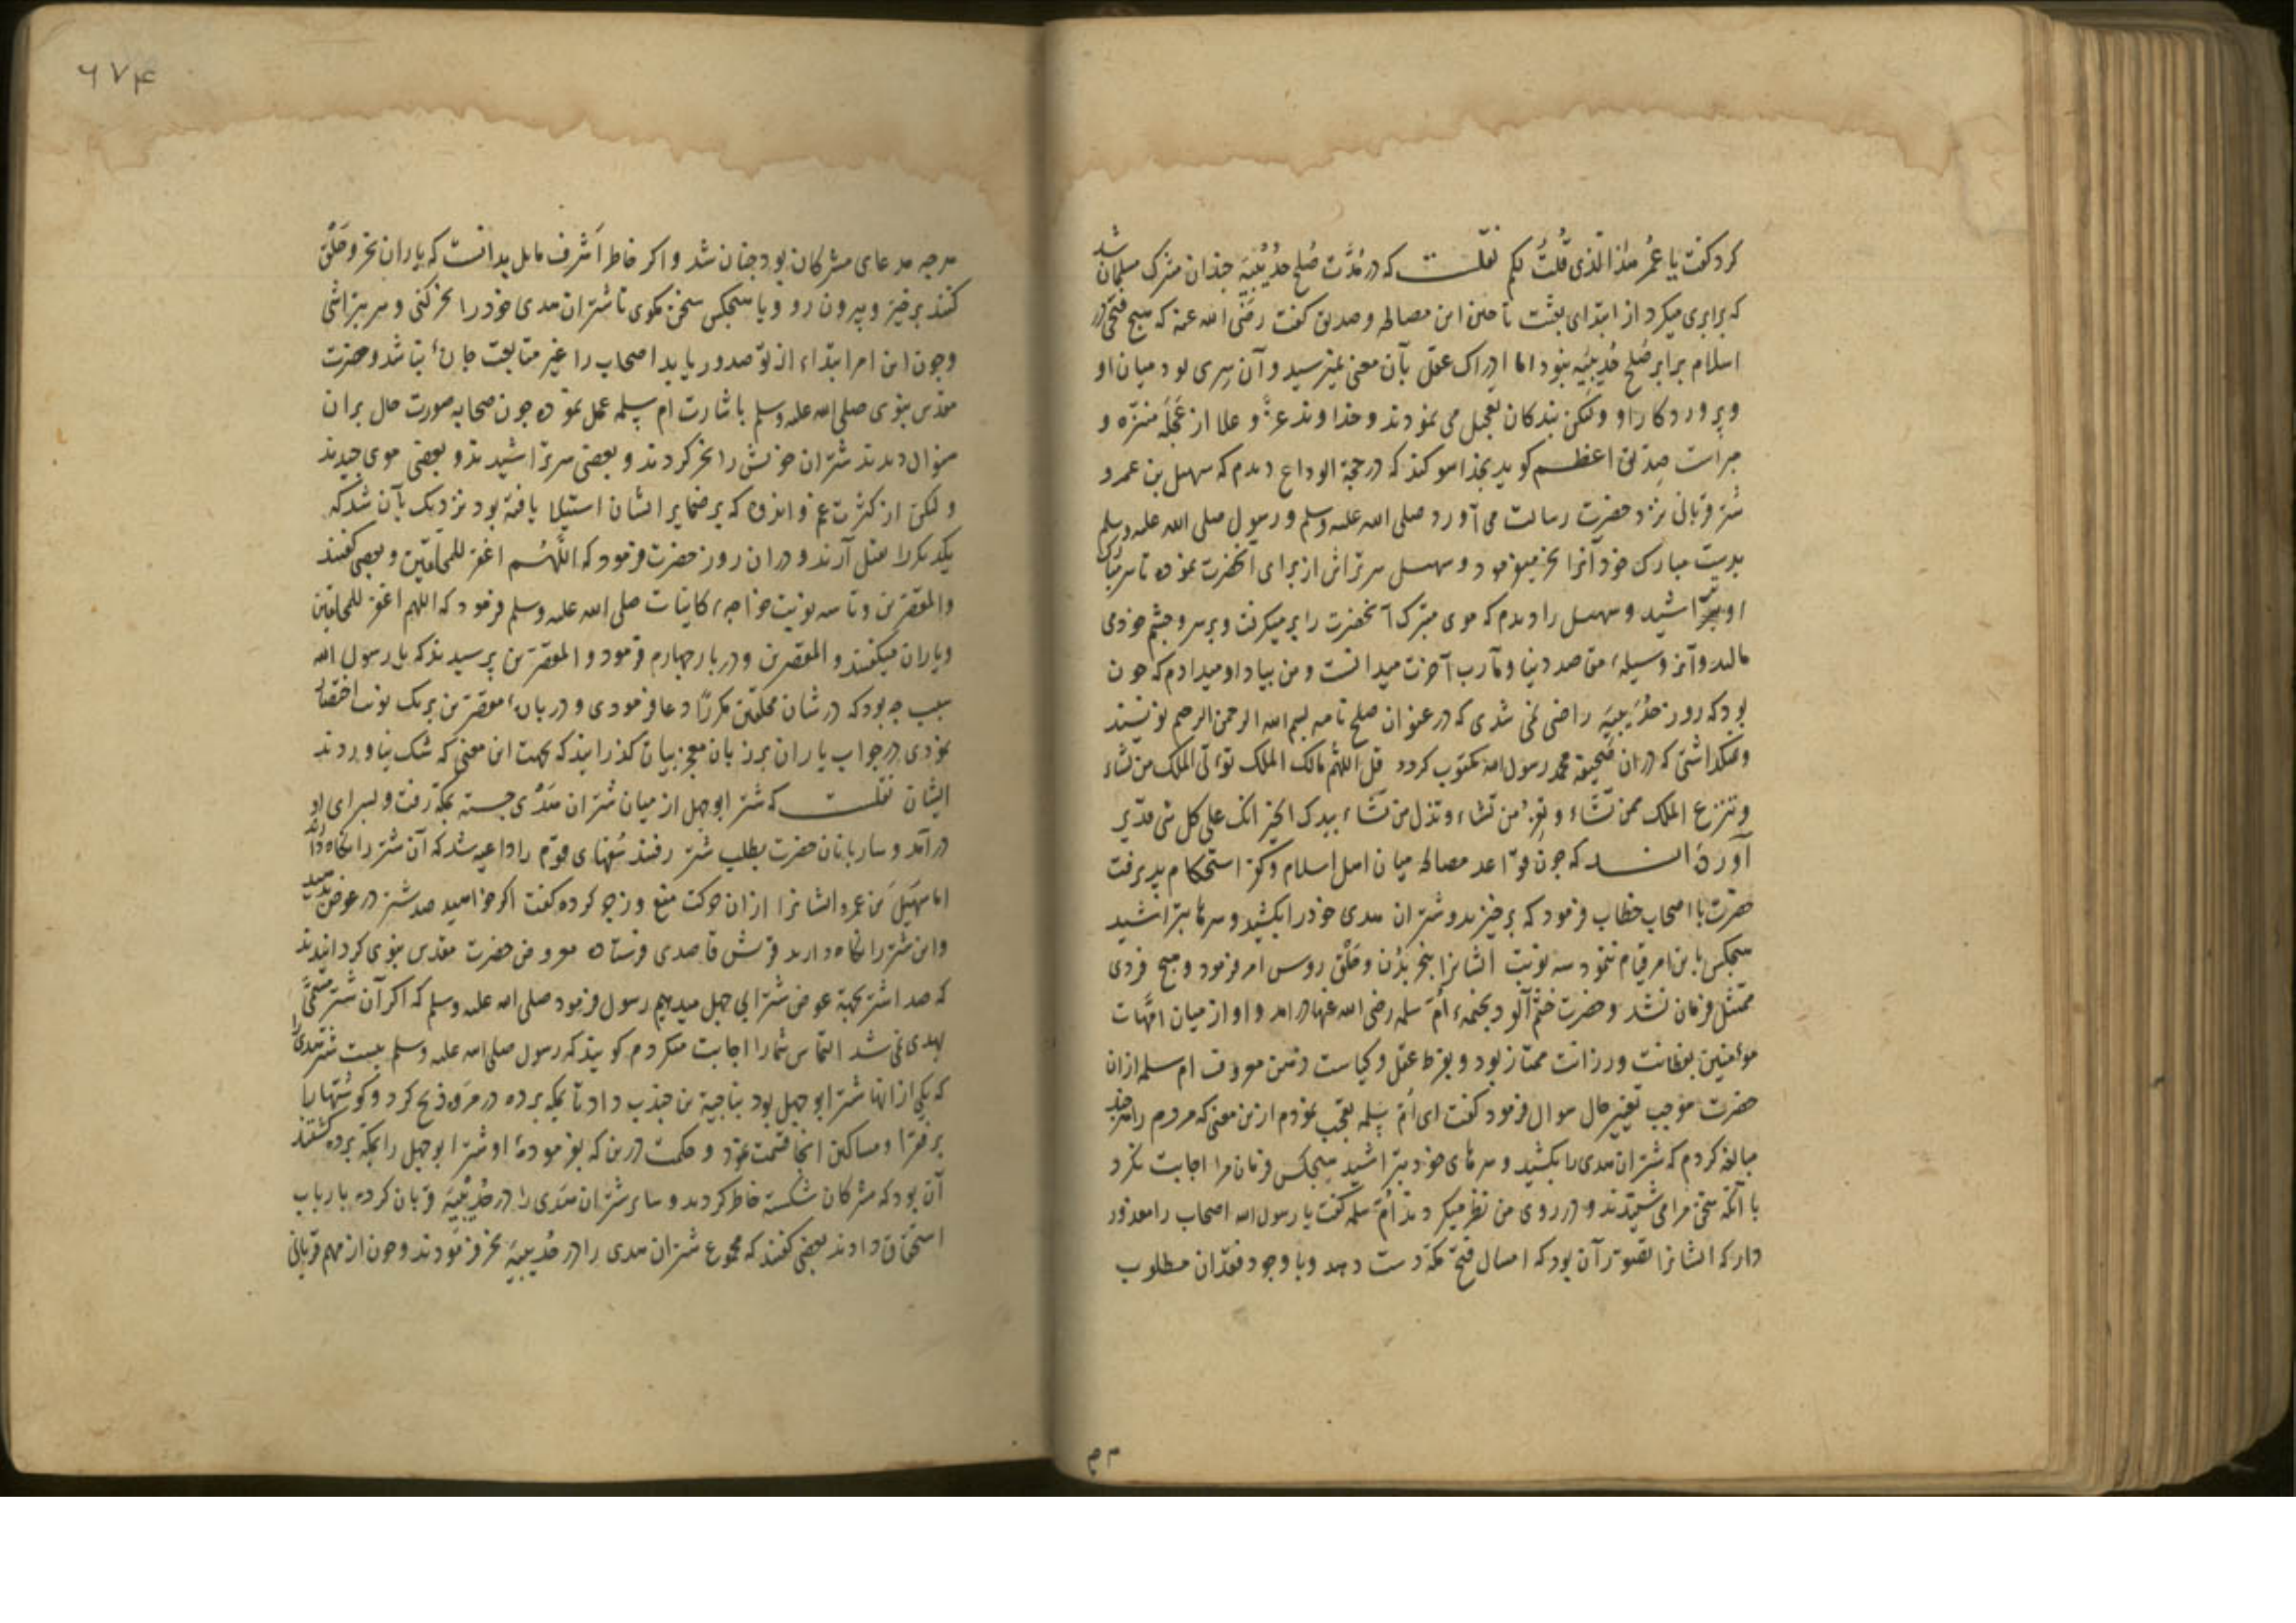 کرد کفت یا عُمَر هذا الّذی قُلتُ لکم نقلست که در مُدَّت صُلح حُدَیْبِیَه جندان مشرک مسلمان شد
که برابری میکرد از ابتدای بعثت تا حین این مصالحه و صدیق کفت رضی الله عنه که هیج فتحی در
اسلام برابر صُلح حُدیبیَه نبود اما ادراک عقل بآن معنی نمیرسید و آن سِری بود میان او
و پروردکار او ولکن بندکان تعجیل می نمودند و خداوند عزّ و علا از عَجَله منزّه و
مبراست صِدیق اعظم کوید بخدا سوکند که در حجة الوداع دیدم که سهیل بن عمرو
شتر قربانی نزد حضرت رسالت می آورد صلی الله علیه وسلم و رسول صلی الله علیه وسلم
بدست مبارک خود آنرا نحر میفرمود و سهیل سرتراش از برای آنحضرت نموده تا سر مبارک
او بتراشید و سهیل را دیدم که موی متبرک آنحضرت را بر میکرفت و بر سر و جشم خود می
مالید و آنرا وسیلهٔ مقاصد دنیا و مآرب آخرت میدانست و من بیاد او میدادم که جون
بود که روز حُدَیبِیَه راضی نمی شدی که در عنوان صلح نامه بسم الله الرحمن الرحیم نویسند
و نمیکذاشتی که در ان صَحیفه محمد رسول الله مکتوب کردد قل اللّهُمّ مالک الملک توءتی الملک من تشاء
و تنزع الملک ممن تشَاء و تعِزُّ من تشاء و تذل من تشَاء بیدک الخیر انک علی کل شی قدیر
آورده اند که جون قواعد مصالحه میان اهل اسلام و کفر استحکام پذیرفت
حضرت با اصحاب خطاب فرمود که برخیزید و شتران هدی خود را بکشید و سرها بتراشید
هیجکس باین امر قیام ننمود سه نوبت ایشانرا بنحر بُدْن و حَلْق روس امر فرمود و هیج فردی
ممتثل فرمان نشد و حضرت خشم آلود بخیمهٔ اُم سلمه رضی الله عنها در امد و او از میان امّهات
موءمنین بفطانت و رزانت ممتاز بود و بفرط عقل و کیاست و تمن معروف ام سلمه از ان
حضرت موجب تغییر حال سوال فرمود کفت ای اُم سلمه تعجب نمودم ازین معنی که مردم را هر جند
مبالغه کردم که شتران هدی را بکشید و سرهای خود بتراشید هیجکس فرمان مرا اجابت نکرد
با آنکه سخن مرا می شنیدند و در روی من نظر میکردند اُم سلمه کفت یا رسول الله اصحاب را معذور
دار که ایشانرا تصور آن بود که امسال فتح مکه دست دهد و با وجود فقدان مطلوب
۶۷۴
هرجه مدعای مشرکان بود جنان شد و اکر خاطر اَشرف مایل بدانست که یاران نحر و حَلْق
کنند برخیز و بیرون رو و با هیجکس سخن مکوی تا شتران هدی خود را نحر کنی و سر بتراشی
و جون این امر ابتداء از تو صدور یابد اصحاب را غیر متابعت جارهٔ نباشد و حضرت
مقدس نبوی صلی الله علیه وسلم باشارت ام سلمه عمل نموده جون صحابه صورت حال بران
منوال دیدند شتران خویش را نحر کردند و بعضی سر تراشیدند و بعضی موی جیدند
ولکن از کثرت غم و اندوه که بر ضمایر ایشان استیلا یافته بود نزدیک بآن شد که
یکدیکر را بقتل آرند و در ان روز حضرت فرمود که اللّهُم اغفر للمحلقین و بعضی کفتند
والمقصرین و تا سه نوبت خواجهٔ کاینات صلی الله علیه وسلم فرمود که اللهم اغفر للمحلقین
و یاران میکفتند والمقصرین و در بار جهارم فرمود والمقصّرین پرسیدند که یا رسول الله
سبب جه بود که در شان محلّقین مکررًا دعا فرمودی و در بارهٔ مقصّرین بر یک نوبت اختصار
نمودی در جواب یاران بر زبان معجز بیان کذرانید که بجهت این معنی که شک نیاوردند
ایشان نقلست که شتر ابو جهل از میان شتران هَدْی جسته بمکه رفت و بسرای او
در آمد و ساربانان حضرت بطلب شتر رفتند سُفهای قوم را داعیه شد که آن شتر را نکاه دارند
اما سُهَیل بن عمرو ایشانرا از ان حرکت منع و زجر کرده کفت اکر خواهید صد شتر در عوض بدهید
و این شتر را نکاه دارید قریش قاصدی فرستاده معروض حضرت مقدس نبوی کردانیدند
که صد اشتر بجهة عوض شتر ابی جهل میدهیم رسول فرمود صلی الله علیه وسلم که اکر آن شتر مسمّی
بهدی نمی شد التماس شما را اجابت میکردم کویند که رسول صلی الله علیه وسلم بیست شتر هدی را
که یکی از انها شتر ابو جهل بود بناجیة بن جندب داد تا بمکه برده در مروه ذبح کرد و کوشتها را
بر فقرا و مساکین انجا قسمت نمود و حکمت درین که بفرمودهٔ او شتر ابو جهل را بمکه برده کشتند
آن بود که مشرکان شکسته خاطر کردند و سایر شتران هَدی را در حُدیْبِیَه قربان کرده بارباب
استحقاق دادند بعضی کفتند که مجموع شتران هدی را در حُدیبیَه نحر فرمودند و جون از مهم قربانی